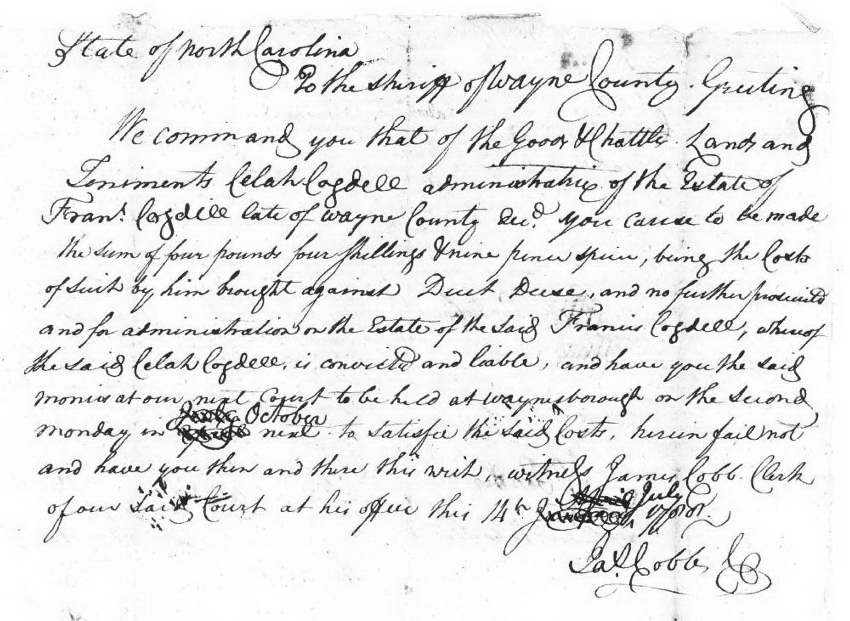 State of North Carolina
To the Sheriff of Wayne County. Greeting
We command you that of the Goods & Chattles Lands and
Teniments Celah Cogdell administratrix of the Estate of
Fran.s Cogdell late of Wayne County Decd. you cause to be made
the sum of four pounds four Shillings & nine pence specie, being the Costs
of Suit by him brought against and no further prosecuted
and for administration on the Estate of the said Francis Cogdell, whereof
the said Celah Cogdell, is convicted and liable, and have you the said
monies at our next Court to be held at Waynesborough on the Second
October
monday in next to satisfie the said Costs, herein fail not
and have you then and there this writ, witness James Cobb Clerk
July
of our said Court at his office this 14th 1788.
Jas. Cobb